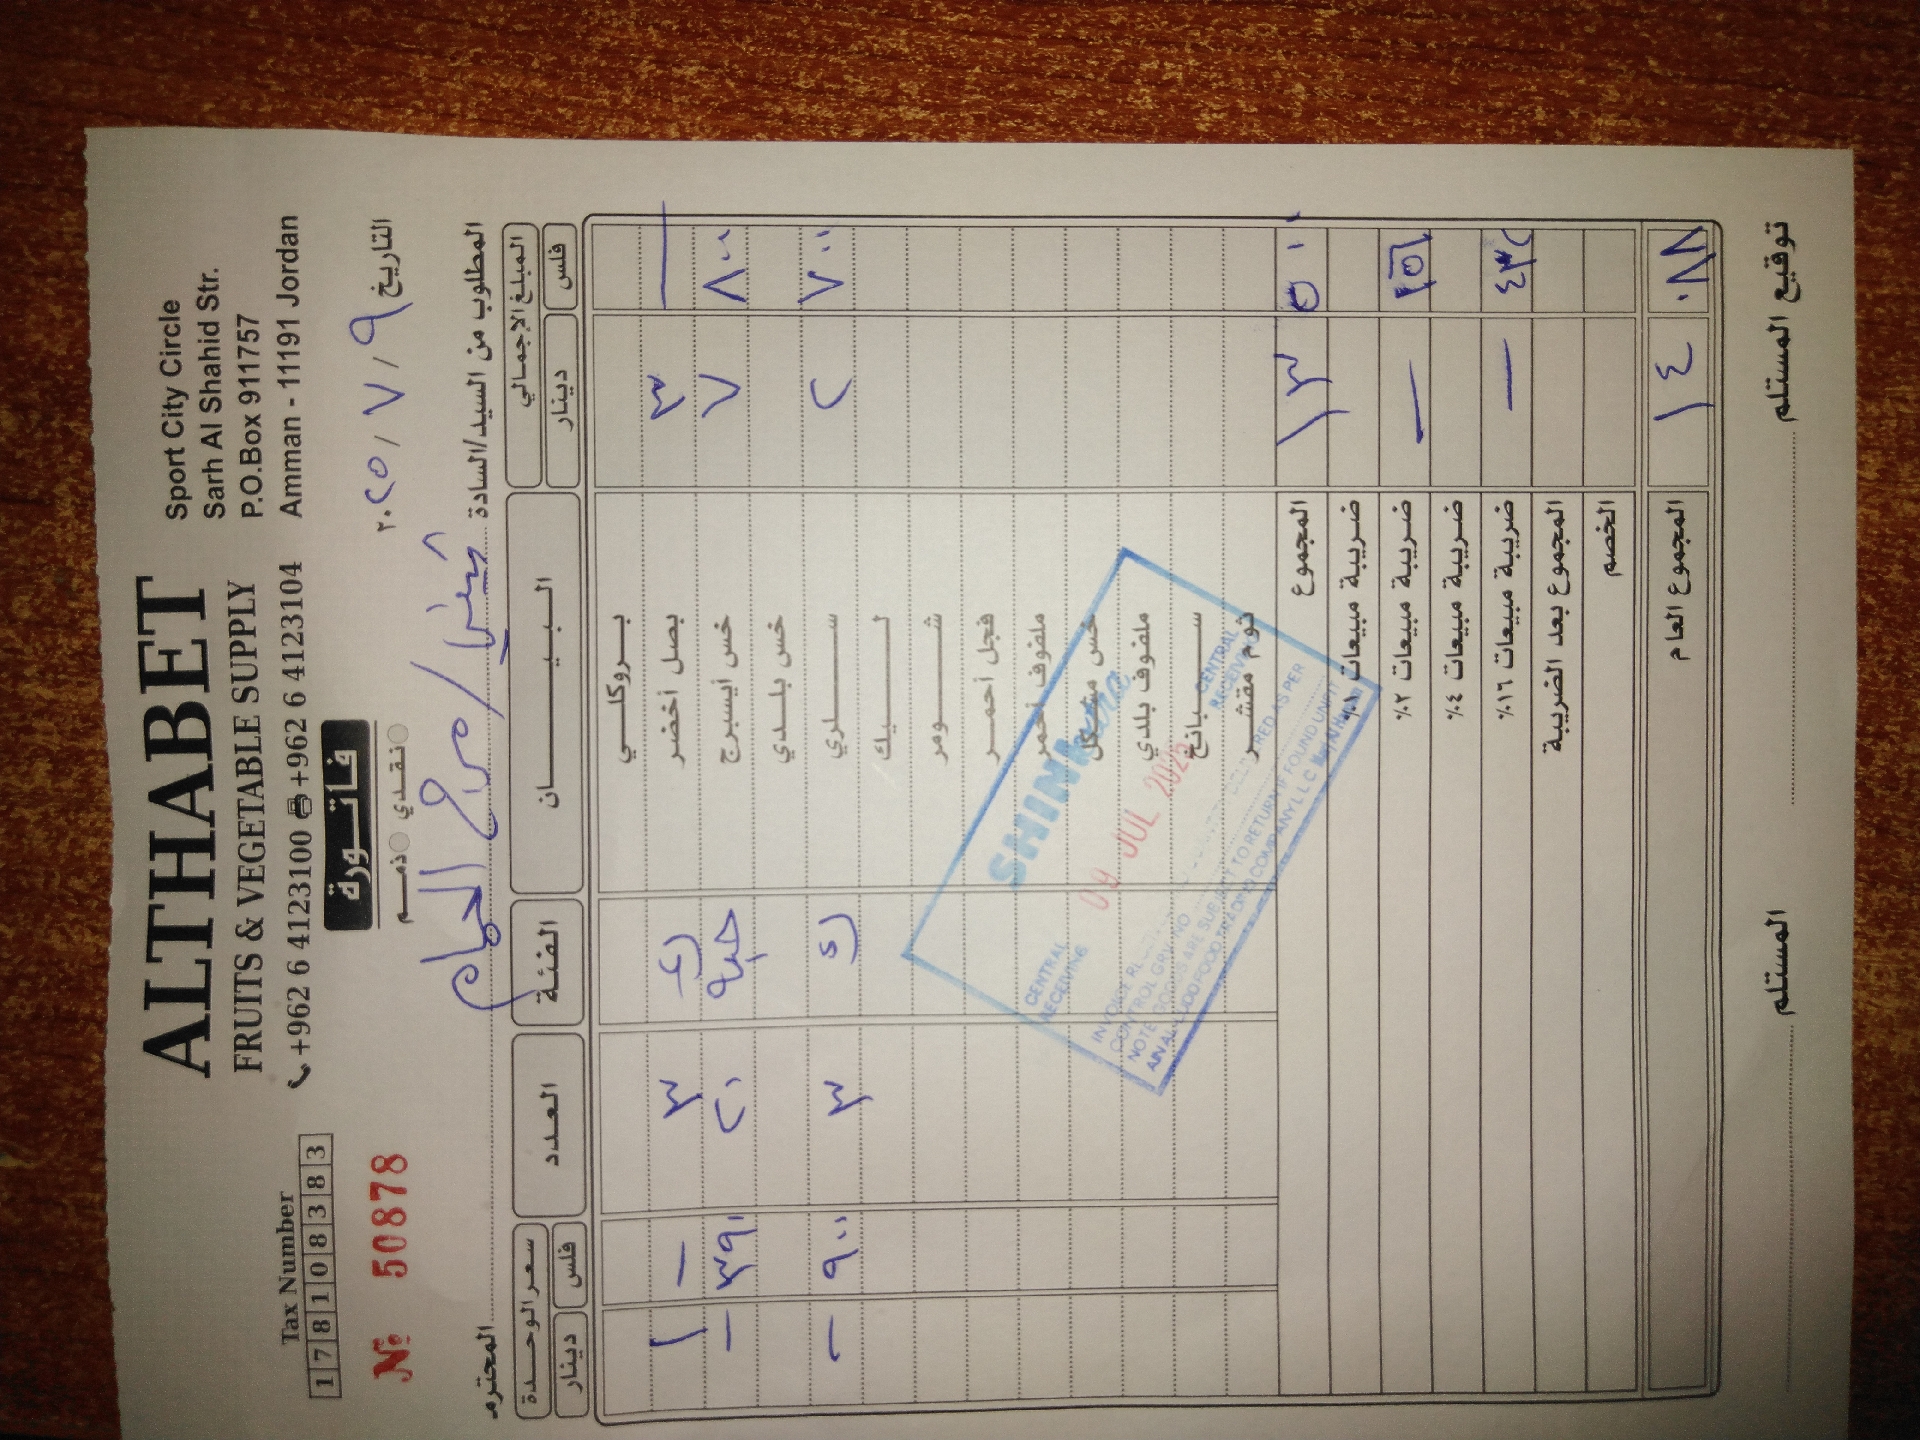 ALTHABET
FRUITS & VEGETABLE SUPPLY
+962 6 4123100 +962 6 4123104
Sport City Circle
Sarh Al Shahid Str.
P.O.Box 911757
Amman - 11191 Jordan
Tax Number
1 7 8 1 0 8 3 8 3
№ 50878
فاتورة
ذمم نقدي
التاريخ ٩ / ٧ / ٢٠٢٥
المطلوب من السيد/السادة شينيرا / مرج الحمام المحترم
المبلغ الإجمالي البيان الفئة العدد سعر الوحدة
فلس دينار فلس دينار
بروكلي
— ٣ بصل أخضر ك ٣ — ١
٨٠٠ ٧ خس أيسبرج حبة ٢٠ ٣٩٠ —
خس بلدي
٧٠٠ ٢ سلري ك ٣ ٩٠٠ —
ليك
شومر
فجل أحمر
ملفوف أحمر
خس مشكل
ملفوف بلدي
سبانخ
ثوم مقشر
٥٠٠ ١٣ المجموع
ضريبة مبيعات ١٪
١٥٦ — ضريبة مبيعات ٢٪
ضريبة مبيعات ٤٪
٤٣٢ — ضريبة مبيعات ١٦٪
المجموع بعد الضريبة
الخصم
٠٨٨ ١٤ المجموع العام
CENTRAL RECEIVING
09 JUL 2025
CENTRAL
INVOICE
CONTROL GRV. NO
RED AS PER
NOTE GOODS ARE SUBJECT TO RETURN IF FOUND UNFIT
FOOD TRADING COMPANY L.L.C
توقيع المستلم
المستلم